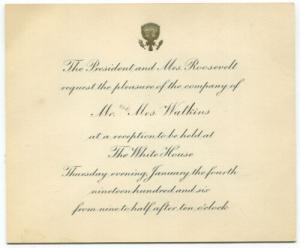 The President and Mrs. Roosevelt
request the pleasure of the company of
Mr. and Mrs. Watkins
at a reception to be held at
The White House
Thursday evening, January the fourth
nineteen hundred and six
from nine to half after ten o'clock